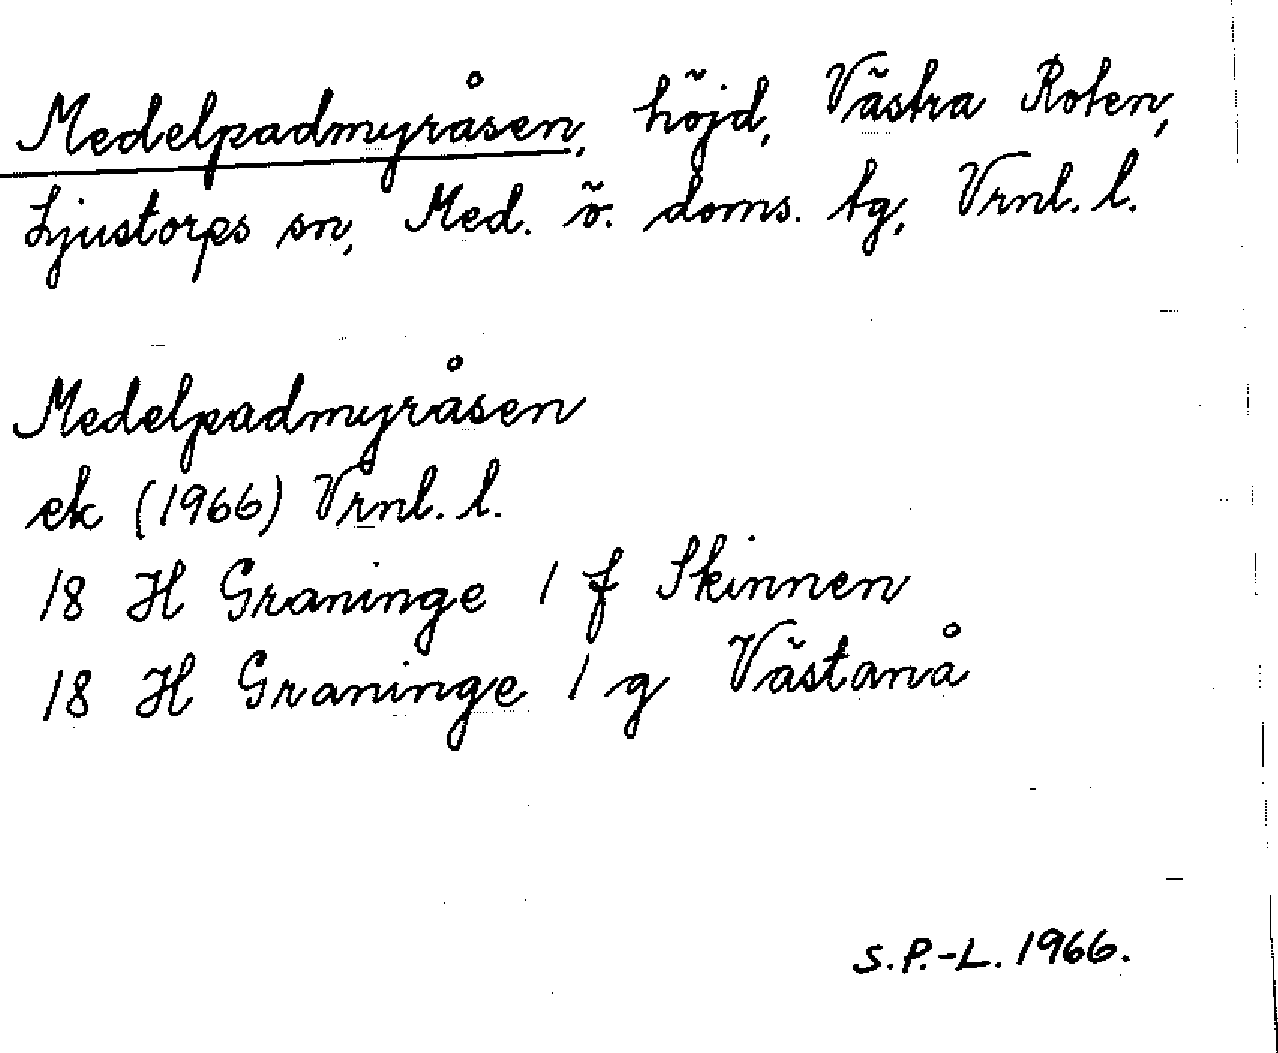 Medelpadmyråsen, höjd, Västra Roten,
Ljustorps sn, Med. ö. doms. tg, Vrnl. l.
Medelpadmyråsen
ek (1966) Vrnl. l.
18 H Graninge 1 f Skinnen
18 H Graninge 1 g Västanå
S.P.-L. 1966.